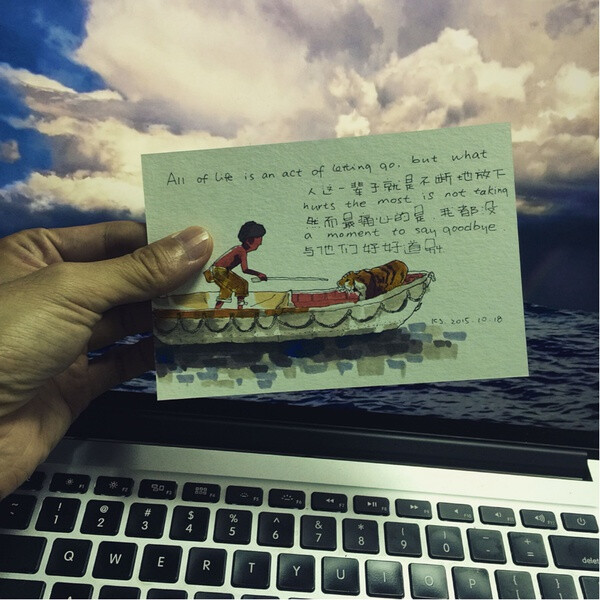 All of life is an act of letting go. but what
人这一辈子就是不断地放下
hurts the most is not taking
然而最痛心的是 我都没
a moment to say goodbye.
与他们好好道别
2015.10.18
F1
F2
F3
F4
F5
F6
F7
F8
F9
F10
F11
F12
! 1
@ 2
# 3
$ 4
% 5
^ 6
& 7
* 8
( 9
) 0
- 
+ =
delete
Q W E R T Y U I O P { [ } ]